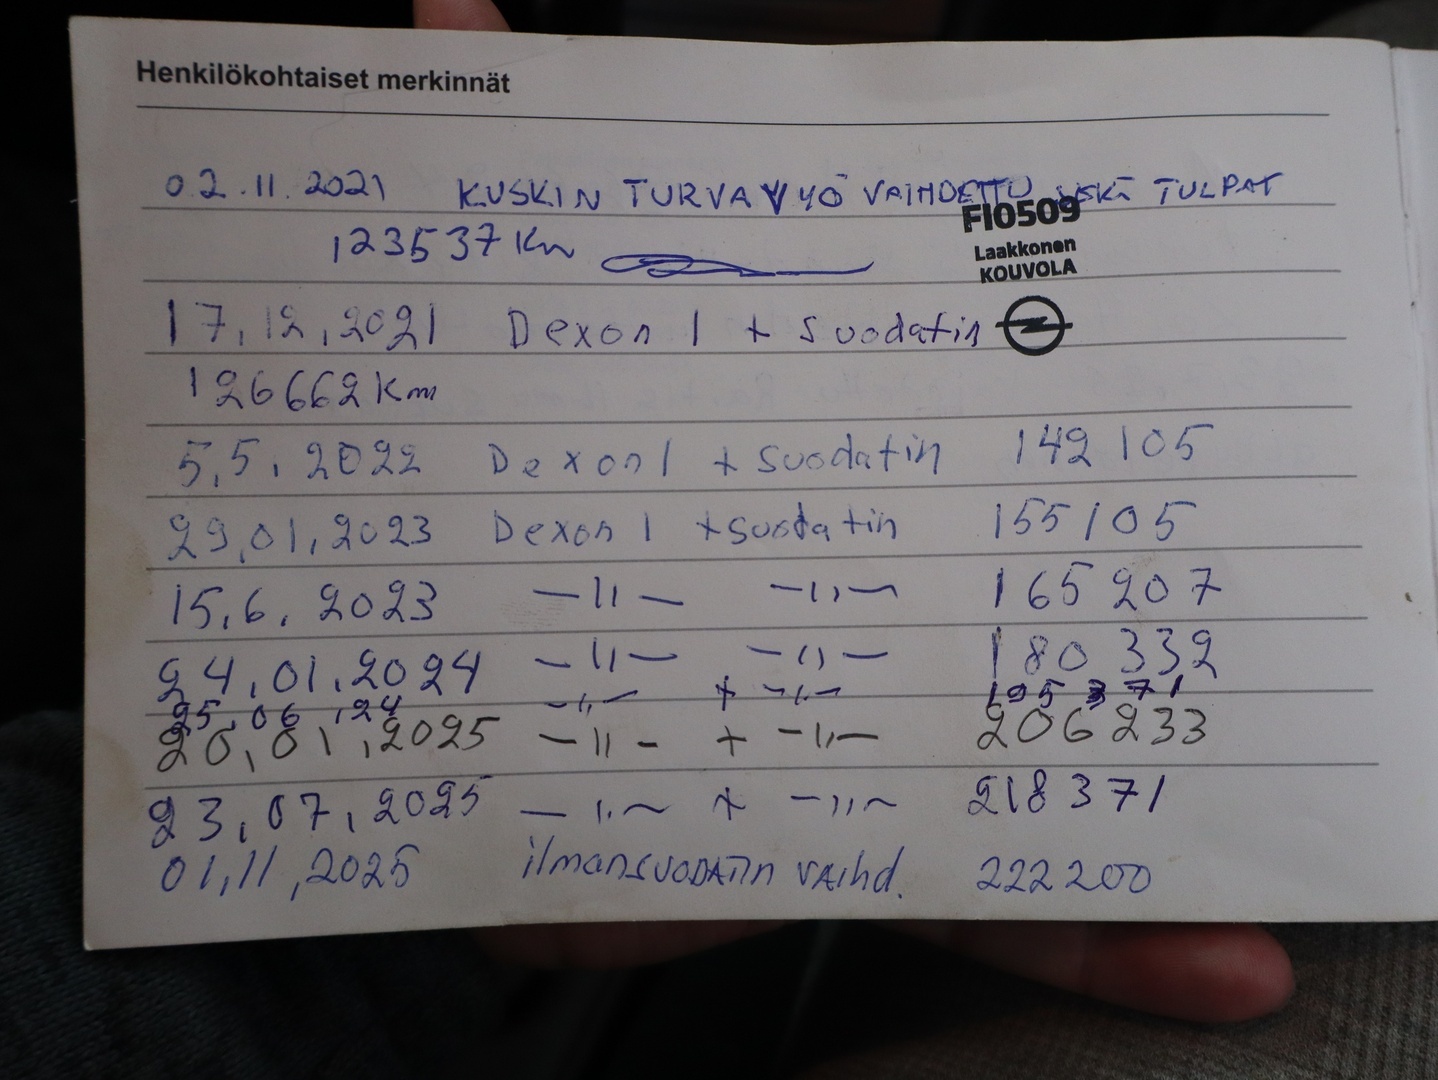 Henkilökohtaiset merkinnät
02.11.2021 KUSKIN TURVAVYÖ VAIHDETTU SEKÄ TULPAT
123537 Km
FI0509
Laakkonen
KOUVOLA
17,12,2021 Dexon 1 + Suodatin
126662 Km
5,5, 2022 Dexon 1 + Suodatin 142105
29,01,2023 Dexon 1 + suodatin 155105
15,6, 2023 —11— —11— 165207
24,01,2024 —11— —11— 180332
25,06,24 —11— + —11— 195371
20,01,2025 —11— + —11— 206233
23,07,2025 —11— + —11— 218371
01,11,2025 ilmansuodatin vaihd. 222200